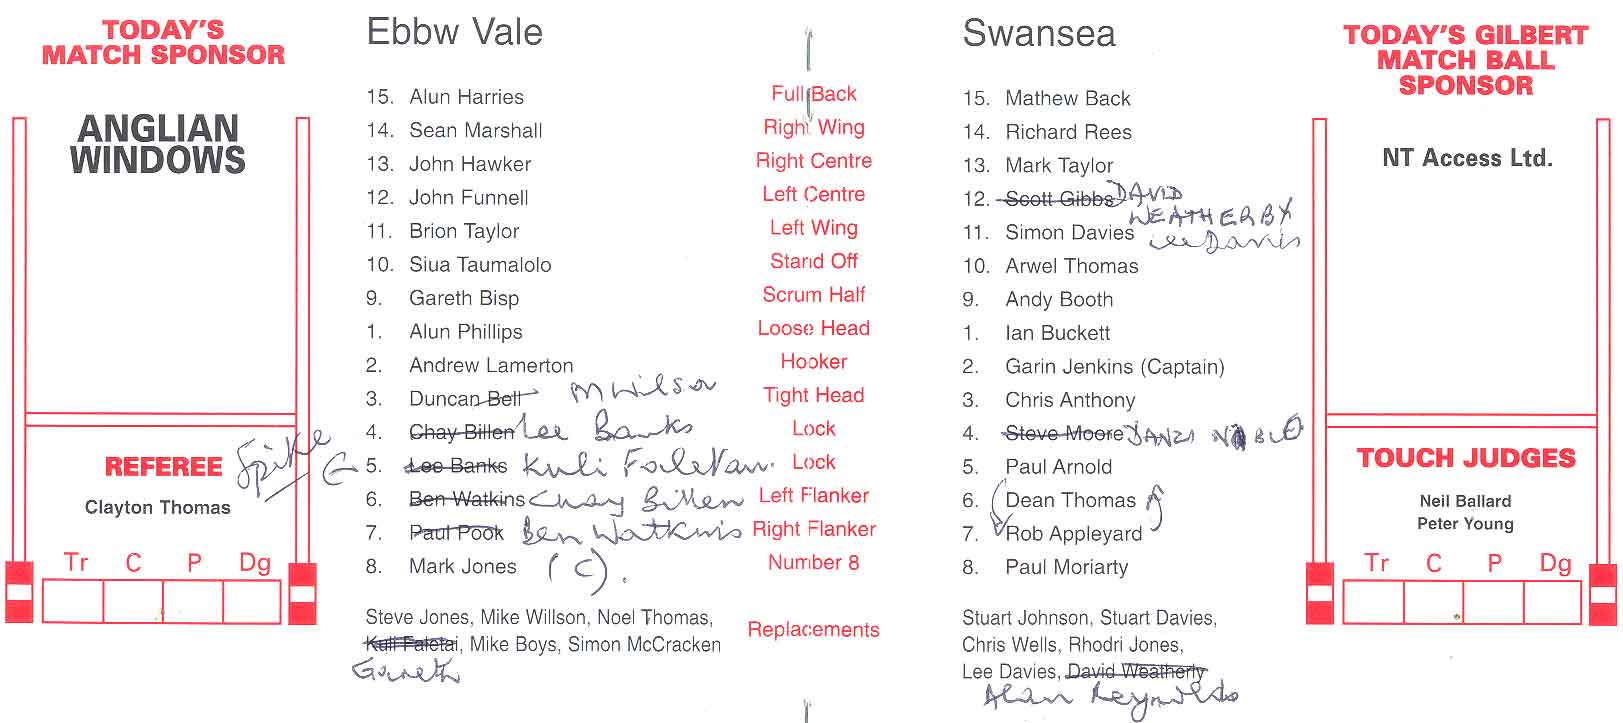 TODAY'S
MATCH SPONSOR
ANGLIAN
WINDOWS
REFEREE Spike
Clayton Thomas
Tr C P Dg
Ebbw Vale
15. Alun Harries Full Back
14. Sean Marshall Right Wing
13. John Hawker Right Centre
12. John Funnell Left Centre
11. Brion Taylor Left Wing
10. Siua Taumalolo Stand Off
9. Gareth Bisp Scrum Half
1. Alun Phillips Loose Head
2. Andrew Lamerton Hooker
3. Duncan Bell M Wilson Tight Head
4. Chay Billen Lee Banks Lock
5. Lee Banks Kuli Faletau. Lock
6. Ben Watkins Chay Billen Left Flanker
7. Paul Pook Ben Watkins Right Flanker
8. Mark Jones (C). Number 8
Steve Jones, Mike Willson, Noel Thomas,
Kuli Faletai, Mike Boys, Simon McCracken
Gareth
Replacements
Swansea
15. Mathew Back
14. Richard Rees
13. Mark Taylor
12. Scott Gibbs DAVID
WEATHERBY
11. Simon Davies Lee Davies
10. Arwel Thomas
9. Andy Booth
1. Ian Buckett
2. Garin Jenkins (Captain)
3. Chris Anthony
4. Steve Moore
5. Paul Arnold
6. Dean Thomas
7. Rob Appleyard
8. Paul Moriarty
Stuart Johnson, Stuart Davies,
Chris Wells, Rhodri Jones,
Lee Davies, David Weatherly
Alan Reynolds
TODAY'S GILBERT
MATCH BALL
SPONSOR
NT Access Ltd.
TOUCH JUDGES
Neil Ballard
Peter Young
Tr C P Dg